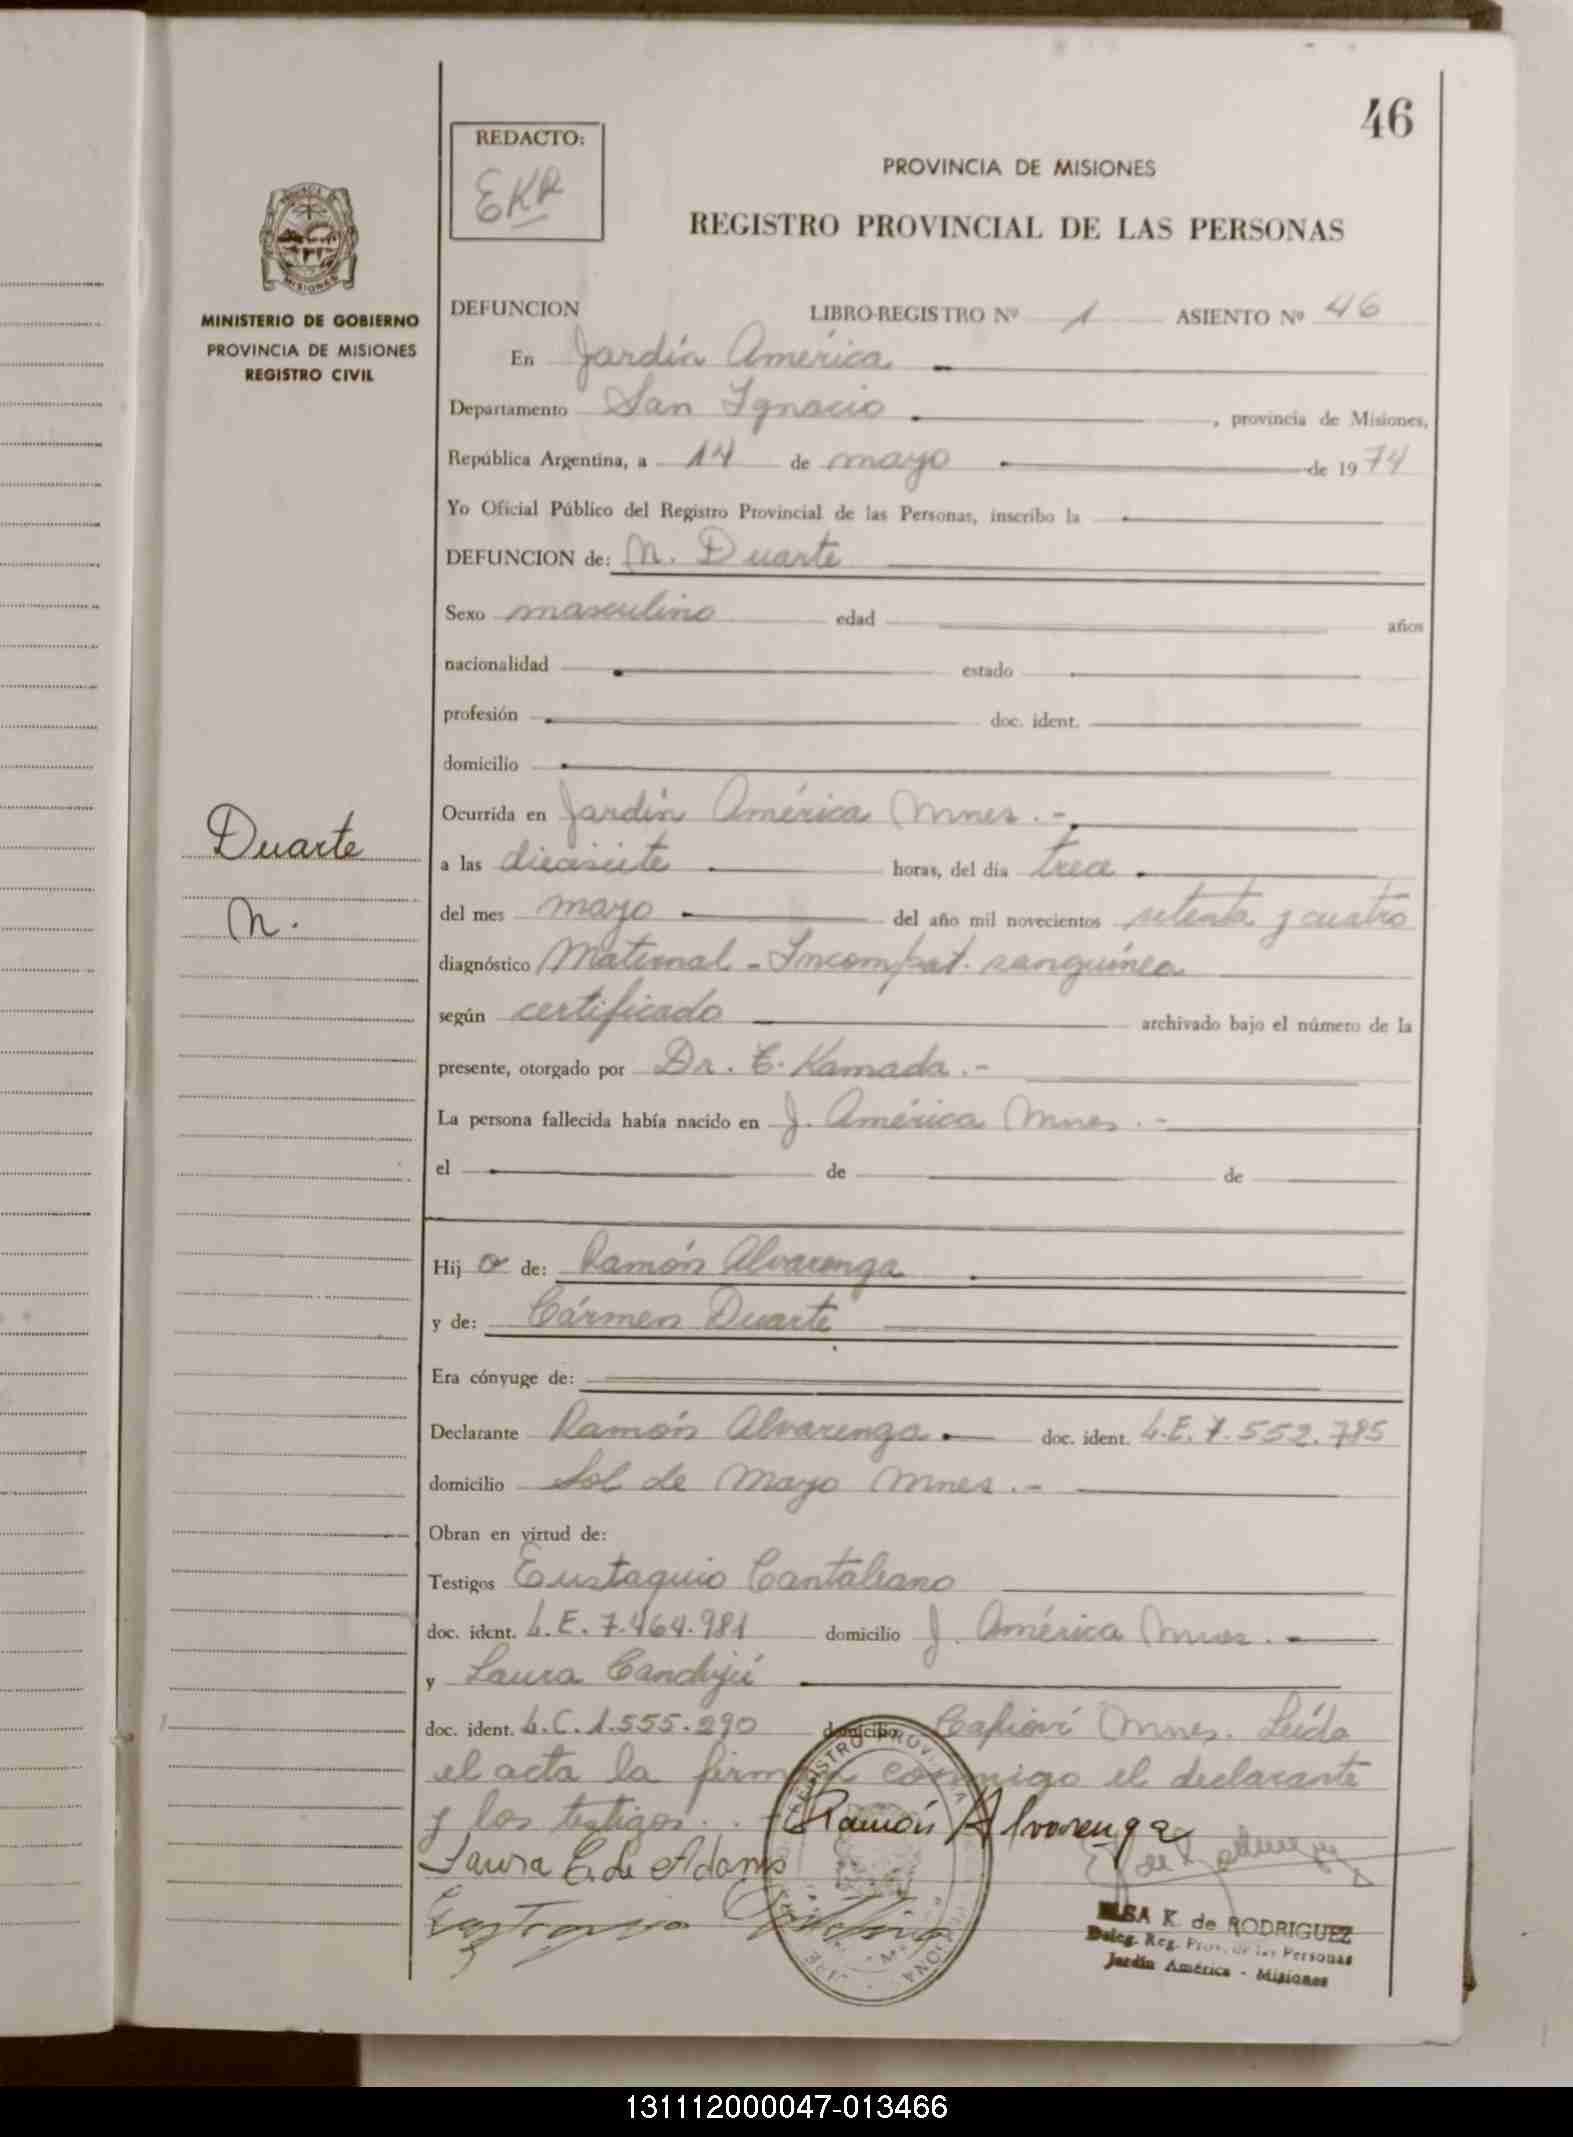 46
REDACTO:
EKR
PROVINCIA DE MISIONES
REGISTRO PROVINCIAL DE LAS PERSONAS
MISIONES
MINISTERIO DE GOBIERNO
PROVINCIA DE MISIONES
REGISTRO CIVIL
DEFUNCION LIBRO-REGISTRO Nº 1 ASIENTO Nº 46
En Jardín América
Departamento San Ignacio, provincia de Misiones,
República Argentina, a 14 de mayo de 1974
Yo Oficial Público del Registro Provincial de las Personas, inscribo la
DEFUNCION de: N. Duarte
Sexo masculino edad años
nacionalidad estado
profesión doc. ident.
domicilio
Ocurrida en Jardín América Mnes.-
Duarte
N.
a las diecisiete horas, del día trece
del mes mayo del año mil novecientos setenta y cuatro
diagnóstico Maternal - Incompat. sanguínea
según certificado archivado bajo el número de la
presente, otorgado por Dr. E. Kamada.-
La persona fallecida había nacido en J. América Mnes.-
el de de
Hijo de: Ramón Alvarenga
y de: Cármen Duarte
Era cónyuge de:
Declarante Ramón Alvarenga doc. ident. L.E. 7.552.785
domicilio Sol de Mayo Mnes.-
Obran en virtud de:
Testigos Eustaquio Cantaliano
doc. ident. L.E. 7.464.981 domicilio J. América Mnes.
y Laura Canduju
doc. ident. L.C. 1.555.290 domicilio Capioví Mnes. Leída
el acta la firman conmigo el declarante
y los testigos.
Ramón Alvarenga
Laura C. de Adams
ELSA K. de RODRIGUEZ
Deleg. Reg. Prov. de las Personas
Jardín América - Misiones
131112000047-013466